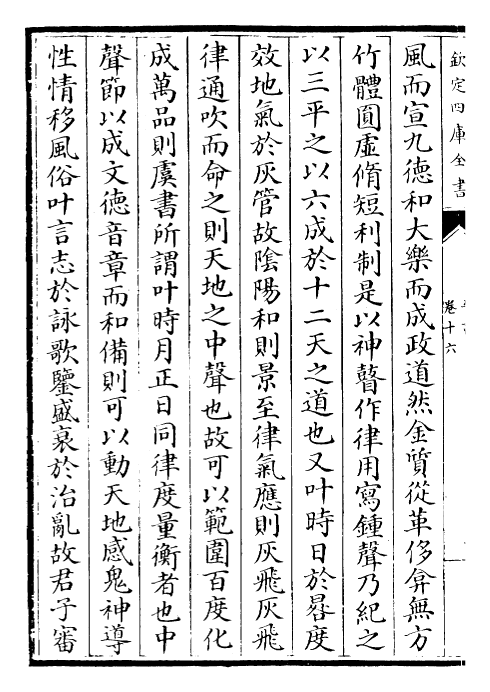 欽定四庫全書
卷十六
風而宣九徳和大樂而成政道然金質從革侈弇無方
竹體圓虛脩短利制是以神瞽作律用寫鍾聲乃紀之
以三平之以六成於十二天之道也又叶時日於晷度
效地氣於灰管故陰陽和則景至律氣應則灰飛灰飛
律通吹而命之則天地之中聲也故可以範圍百度化
成萬品則虞書所謂叶時月正日同律度量衡者也中
聲節以成文徳音章而和備則可以動天地感鬼神導
性情移風俗叶言志於詠歌鑒盛衰於治亂故君子審